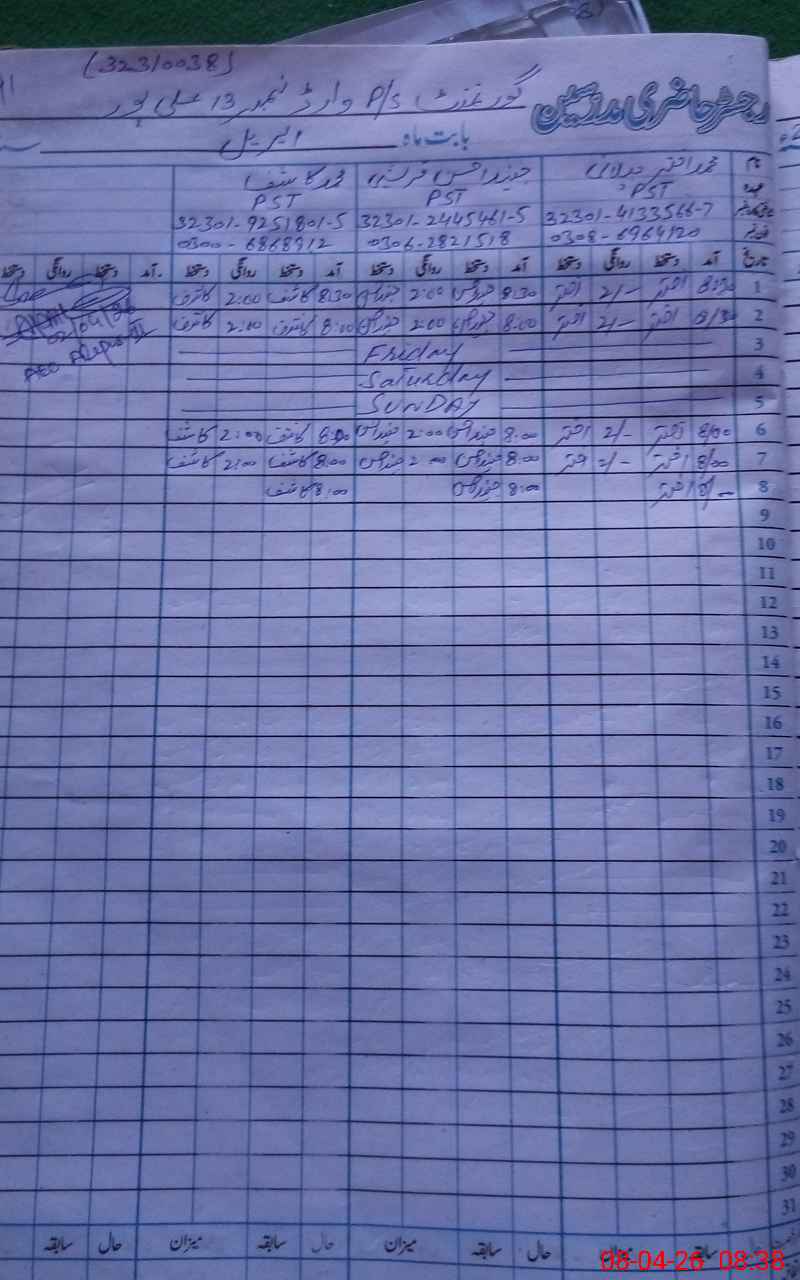 (32310038)
رجسٹر حاضری مدرسین گورنمنٹ P/S وارڈ نمبر 13 علی پور
بابت ماہ اپریل
نام محمد اختر جنید احسن قریشی محمد کاشف
عہدہ PST PST PST
32301-4133566-7 32301-2445461-5 32301-9251801-5
0308-6964120 0306-2821518 0300-6868912
تاریخ آمد دستخط روانگی دستخط آمد دستخط روانگی دستخط آمد دستخط روانگی دستخط آمد دستخط روانگی دستخط
1 8:30 اختر 2/- اختر 8:30 2:00 8:30 کاشف 2:00 کاشف
2 8/30 اختر 2/- اختر 8:00 2:00 8:00 کاشف 2:00 کاشف
02/04/26
AEO
3 Friday
4 Saturday
5 SUNDAY
6 8/00 اختر 2/- اختر 8:00 2:00 8:00 کاشف 2:00 کاشف
7 8/00 اختر 2/- اختر 8:00 2:00 8:00 کاشف 2:00 کاشف
8 8/- اختر 8:00 8:00 کاشف
9
10
11
12
13
14
15
16
17
18
19
20
21
22
23
24
25
26
27
28
29
30
31
سابقہ حال میزان سابقہ حال میزان سابقہ حال میزان سابقہ
08-04-26 08:38